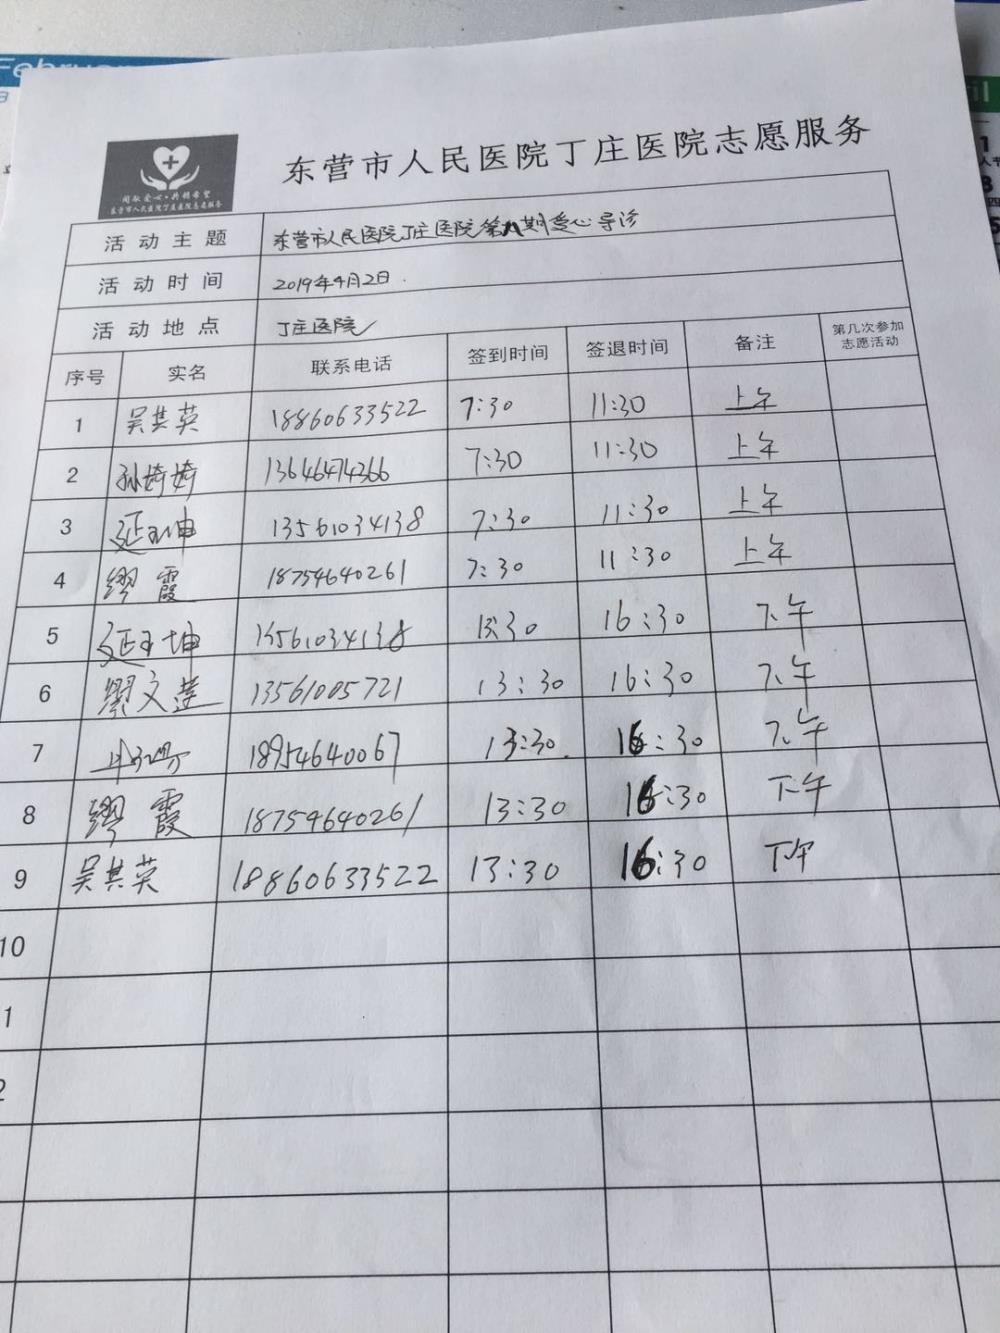 February
东营市人民医院丁庄医院志愿服务
同献爱心·共铸希望
东营市人民医院丁庄医院志愿服务
活动主题 东营市人民医院丁庄医院第八期爱心导诊
活动时间 2019年4月2日.
活动地点 丁庄医院
序号 实名 联系电话 签到时间 签退时间 备注 第几次参加志愿活动
1 吴其英 18860633522 7:30 11:30 上午
2 孙婷婷 13646474366 7:30 11:30 上午
3 延玉坤 13561034138 7:30 11:30 上午
4 缪霞 18754640261 7:30 11:30 上午
5 延玉坤 13561034138 13:30 16:30 下午
6 綦文莲 13561005721 13:30 16:30 下午
7 18954640067 13:30. 16:30 下午
8 缪霞 18754640261 13:30 16:30 下午
9 吴其英 18860633522 13:30 16:30 下午
10
1
2